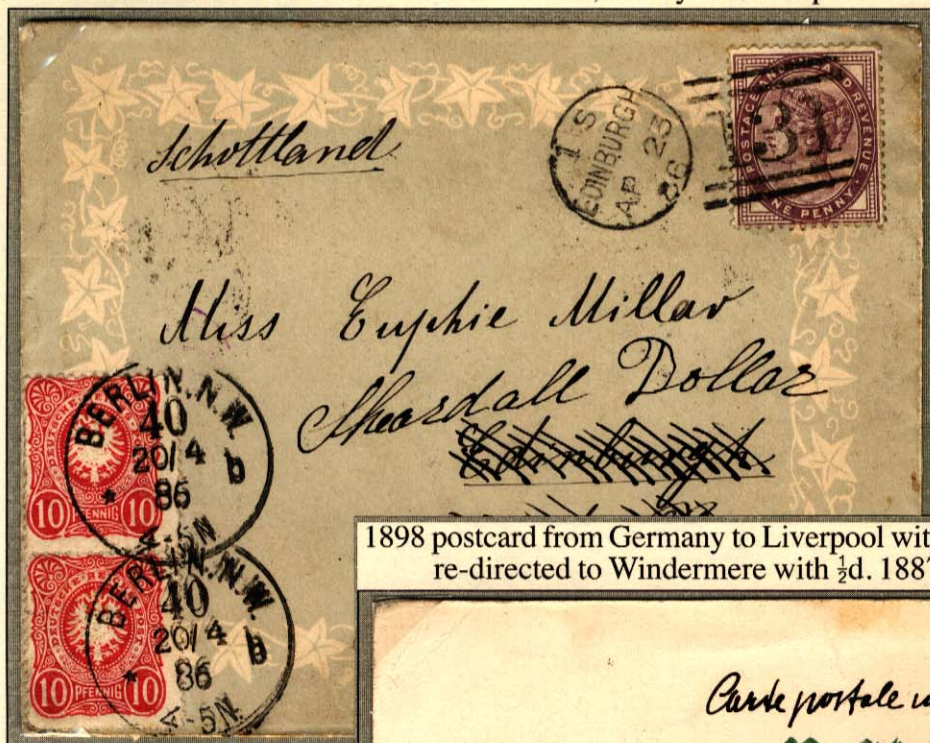 Schottland
1 S
EDINBURGH
AP 23
86
131
POSTAGE AND INLAND REVENUE
ONE PENNY
Miss Euphie Millar
Sheardall Dollar
Edinburgh
BERLIN, N.W.
40
20/4 b
* 86
4-5N
DEUTSCHE REICHS-POST
10 PFENNIG 10
BERLIN, N.W.
40
20/4 b
* 86
4-5N
DEUTSCHE REICHS-POST
10 PFENNIG 10
1898 postcard from Germany to Liverpool wit
re-directed to Windermere with ½d. 1887
Carte postale